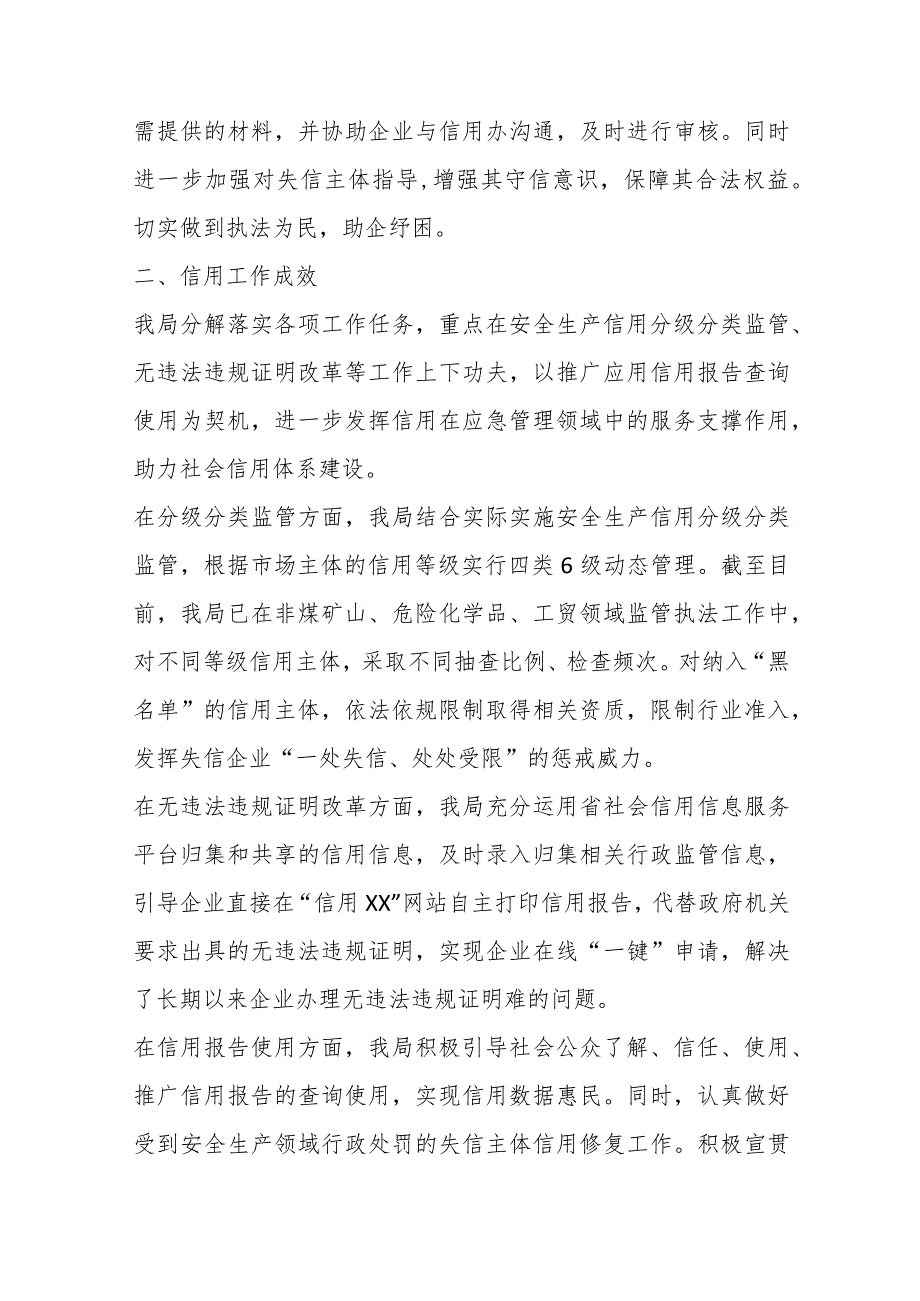 需提供的材料，并协助企业与信用办沟通，及时进行审核。同时
进一步加强对失信主体指导,增强其守信意识，保障其合法权益。
切实做到执法为民，助企纾困。
二、信用工作成效
我局分解落实各项工作任务，重点在安全生产信用分级分类监管、
无违法违规证明改革等工作上下功夫，以推广应用信用报告查询
使用为契机，进一步发挥信用在应急管理领域中的服务支撑作用，
助力社会信用体系建设。
在分级分类监管方面，我局结合实际实施安全生产信用分级分类
监管，根据市场主体的信用等级实行四类6级动态管理。截至目
前，我局已在非煤矿山、危险化学品、工贸领域监管执法工作中，
对不同等级信用主体，采取不同抽查比例、检查频次。对纳入“黑
名单”的信用主体，依法依规限制取得相关资质，限制行业准入，
发挥失信企业“一处失信、处处受限”的惩戒威力。
在无违法违规证明改革方面，我局充分运用省社会信用信息服务
平台归集和共享的信用信息，及时录入归集相关行政监管信息，
引导企业直接在“信用XX”网站自主打印信用报告，代替政府机关
要求出具的无违法违规证明，实现企业在线“一键”申请，解决
了长期以来企业办理无违法违规证明难的问题。
在信用报告使用方面，我局积极引导社会公众了解、信任、使用、
推广信用报告的查询使用，实现信用数据惠民。同时，认真做好
受到安全生产领域行政处罚的失信主体信用修复工作。积极宣贯